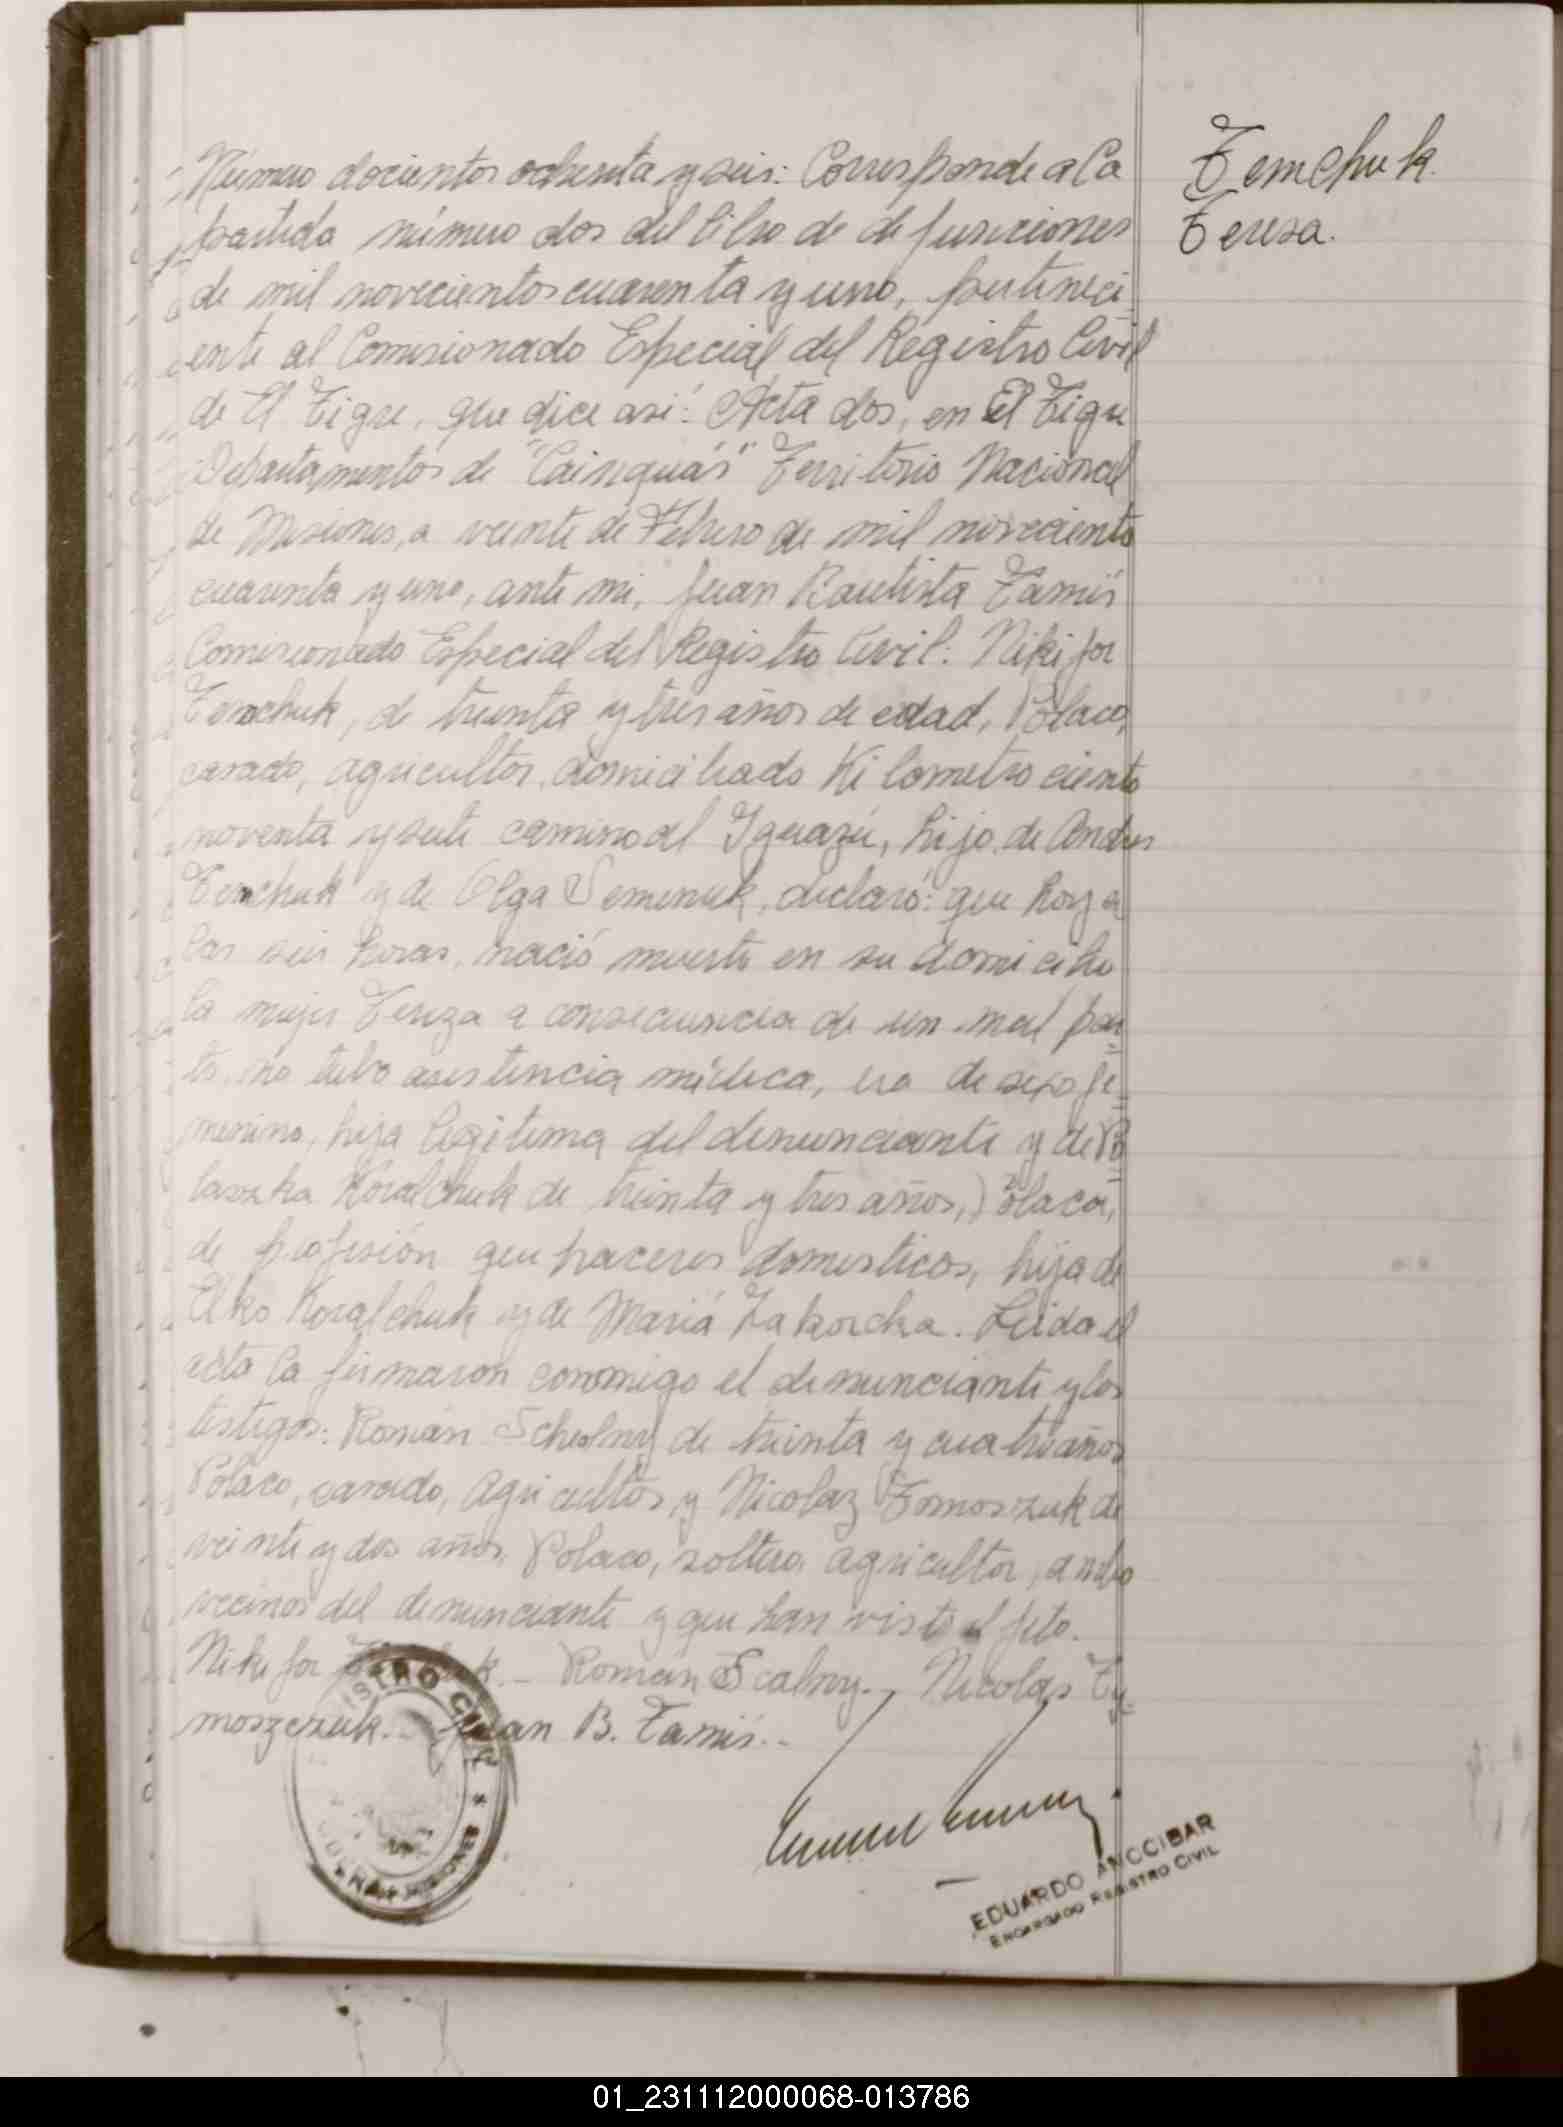 Temchuk
Teresa.
Número docientos ochenta y seis: Corresponde a la
partida número dos del libro de defunciones
de mil novecientos cuarenta y uno, perteneci
ente al Comisionado Especial del Registro Civil
de El Tigre, que dice asi: Acta dos, en El Tigre
Departamentos de "Cainguás" Territorio Nacional
de Misiones, a veinte de Febrero de mil novecientos
cuarenta y uno, ante mi, Juan Bautista
Comisionado Especial del Registro Civil: Nikifor
Temchuk, de treinta y tres años de edad, Polaco,
casado, agricultor, domiciliado Kilometro ciento
noventa y siete camino al Iguazú, hijo de Andres
Temchuk y de Olga Semeniuk, declaró: que hoy a
las seis horas, nació muerta en su domicilio
la mujer Tereza a consecuencia de un mal par
to, no tubo asistencia médica, era de sexo fe
menino, hija legitima del denunciante y de
Koralchuk de treinta y tres años, Polaca,
de profesión que haceres domesticos, hija de
Elko Koralchuk y de Mariá Zakorcka. Leida el
acta la firmaron conmigo el denunciante y los
testigos: Román de treinta y cuatro años
Polaco, casado, agricultor y Nicolaz Tomoszuk de
veinte y dos años, Polaco, soltero agricultor, ambos
vecinos del denunciante y que han visto el feto.
Nikifor - Román Scalny.- Nicolas Ty
moszczuk.- Juan B.
REGISTRO CIVIL
MISIONES
EDUARDO ANOCIBAR
ENCARGADO REGISTRO CIVIL
01_231112000068-013786